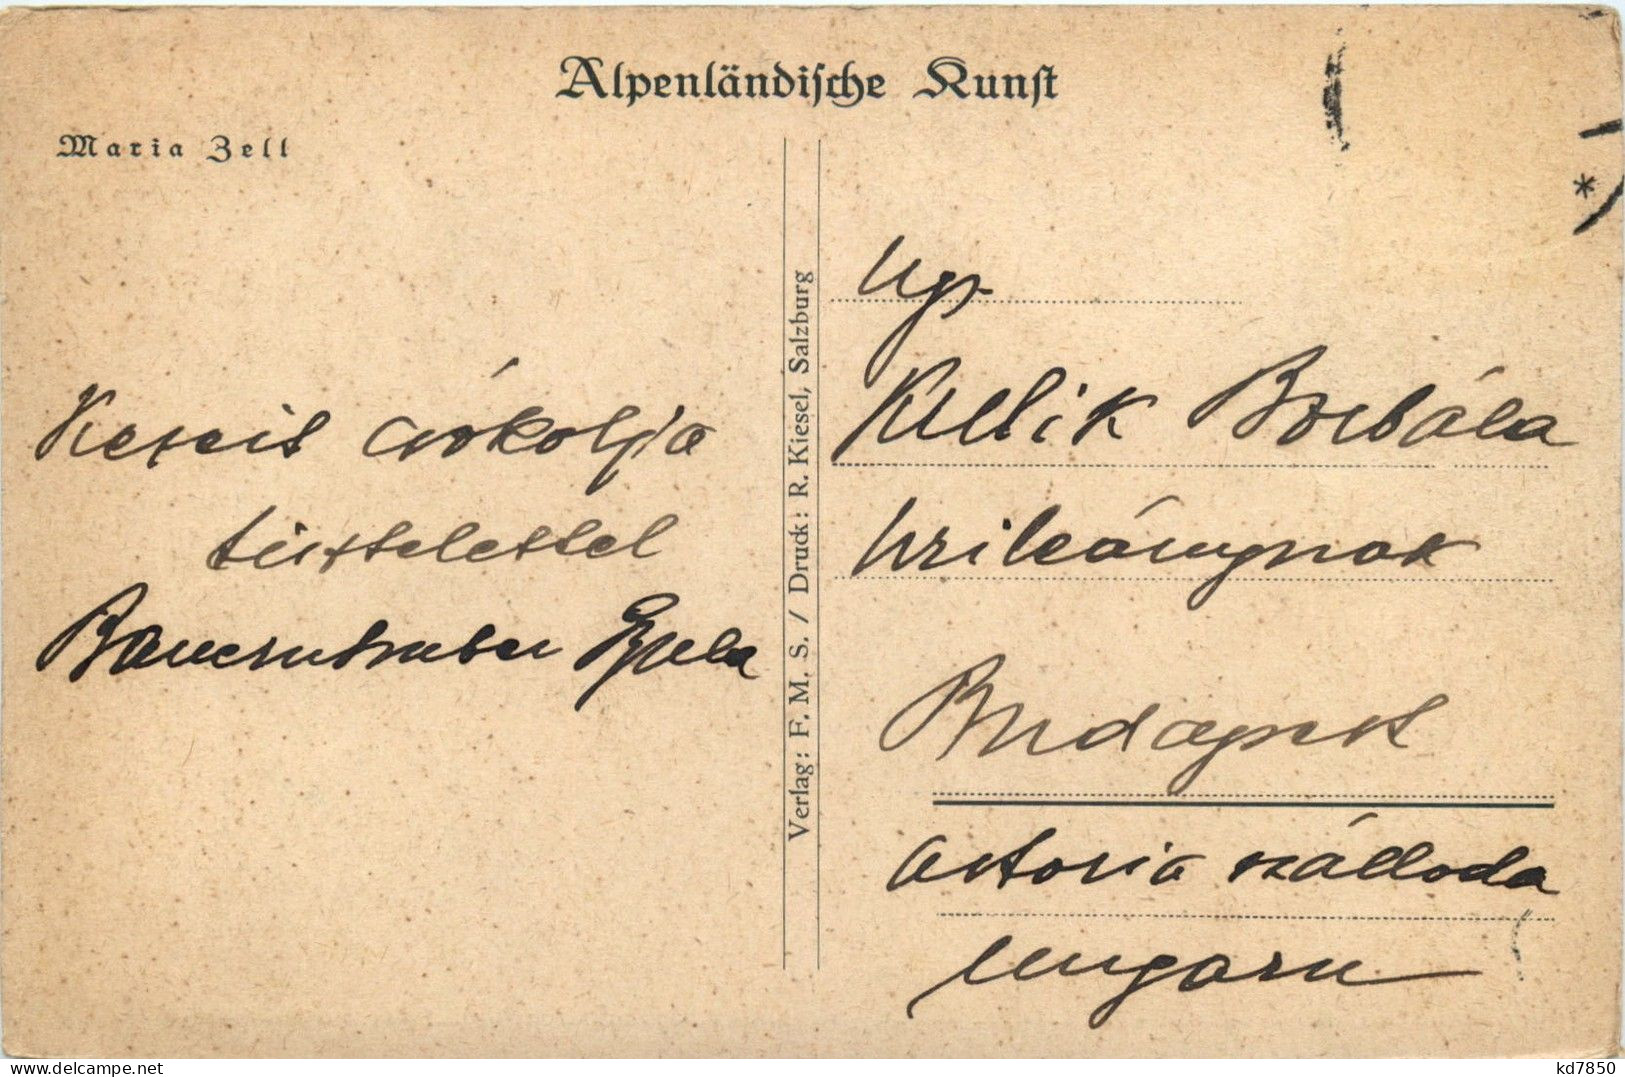 Alpenländische Kunst
Maria Zell
Kezeit csókolja
tisztelettel
Gyula
Verlag: F. M. S. / Druck: R. Kiesel, Salzburg
Ngs
Borbála
urileánynak
Budapest
Astoria szálloda
Ungarn
delcampe.net
kd7850